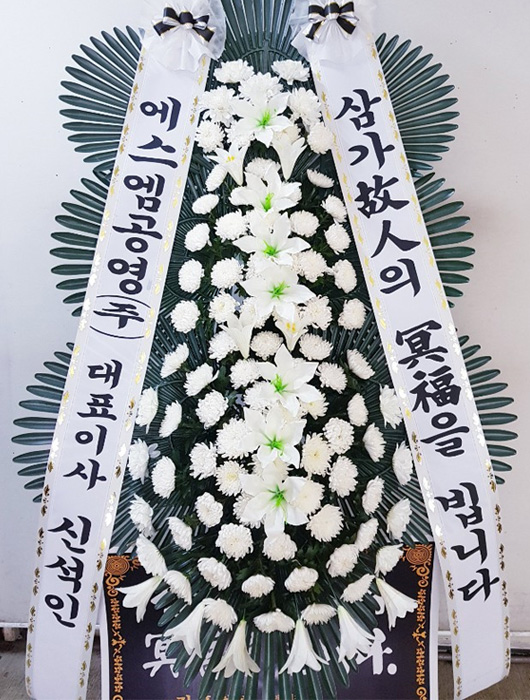 에스엠공영(주) 대표이사 신석인
삼가故人의 冥福을 빕니다
冥